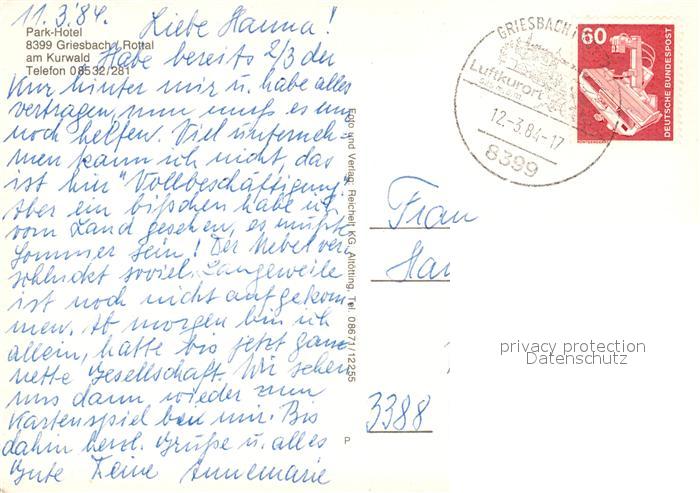 11.3.84. Liebe Hanna!
Park-Hotel
8399 Griesbach i. Rottal
am Kurwald
Telefon 08532/281
Habe bereits 2/3 der
Kur hinter mir u. habe alles
vertragen, nun muß es nur
noch helfen. Viel unterneh-
men kann ich nicht, das
ist hier "Vollbeschäftigung"
Aber ein bißchen habe ich
vom Land gesehen, es müßte
Sommer sein! Der Nebel ver-
schluckt soviel. Langeweile
ist noch nicht aufgekom-
men. Ab morgen bin ich
allein, hatte bis jetzt ganz
nette Gesellschaft. Wir sehen
uns dann wieder zum
Kartenspiel bei mir. Bis
dahin herzl. Grüße u. alles
Gute Deine Annemarie
Foto und Verlag: Reichelt KG, Altötting, Tel. 08671/12255
P
GRIESBACH
Luftkurort
12-3.84-17
8399
60
DEUTSCHE BUNDESPOST
Frau
Han
3388
privacy protection
Datenschutz